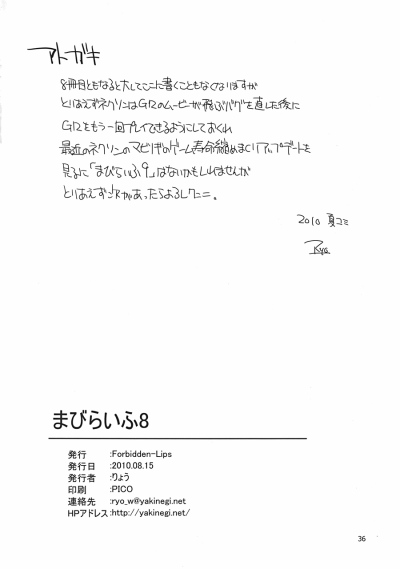 アトガキ
8冊目ともなると大してここに書くこともなくなりますが
とりあえずネクソンはG12のムービーが飛ぶバグを直した後に
G12をもう一回プレイできるようにしておくれ
最近のネクソンのマビノギのゲーム寿命縮めまくりアップデートを
見るに「まびらいふ9」はないかもしれませんが
とりあえず次があったらよろしくニニ。
2010 夏コミ
Ryo
まびらいふ8
発行 :Forbidden-Lips
発行日 :2010.08.15
発行者 :りょう
印刷 :PICO
連絡先 :ryo_w@yakinegi.net
HPアドレス :http://yakinegi.net/
36